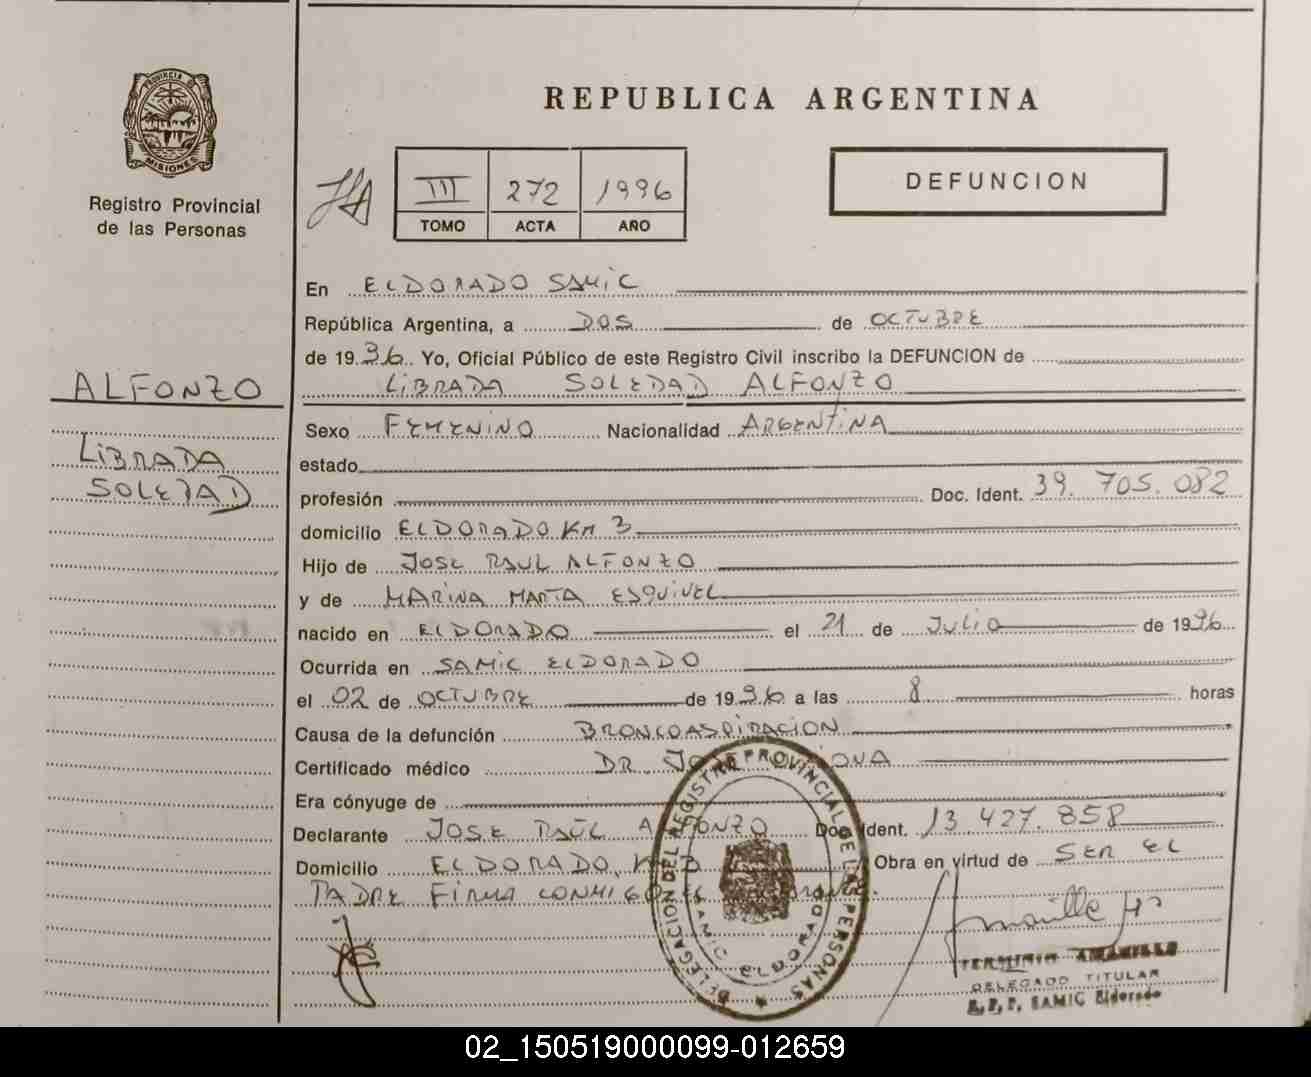 PROVINCIA DE
MISIONES
Registro Provincial
de las Personas
ALFONZO
LIBRADA
SOLEDAD
REPUBLICA ARGENTINA
III 272 1996
TOMO ACTA AÑO
DEFUNCION
En ELDORADO SAMIC
República Argentina, a DOS de OCTUBRE
de 1996. Yo, Oficial Público de este Registro Civil inscribo la DEFUNCION de
LIBRADA SOLEDAD ALFONZO
Sexo FEMENINO Nacionalidad ARGENTINA
estado
profesión Doc. Ident. 39.705.082
domicilio ELDORADO KM 3
Hijo de JOSE RAUL ALFONZO
y de MARINA MARTA ESQUIVEL
nacido en ELDORADO el 21 de JULIO de 1996
Ocurrida en SAMIC ELDORADO
el 02 de OCTUBRE de 1996 a las 8 horas
Causa de la defunción BRONCOASPIRACION
Certificado médico DR. JOSE
Era cónyuge de
Declarante JOSE RAUL ALFONZO Doc. Ident. 13.427.858
Domicilio ELDORADO, KM 3 Obra en virtud de SER EL
PADRE FIRMA CONMIGO EL
DELEGACION DEL REGISTRO PROVINCIAL DE LAS PERSONAS
SAMIC ELDORADO
AMARILLO
DELEGADO TITULAR
R.P.P. SAMIC Eldorado
02_150519000099-012659